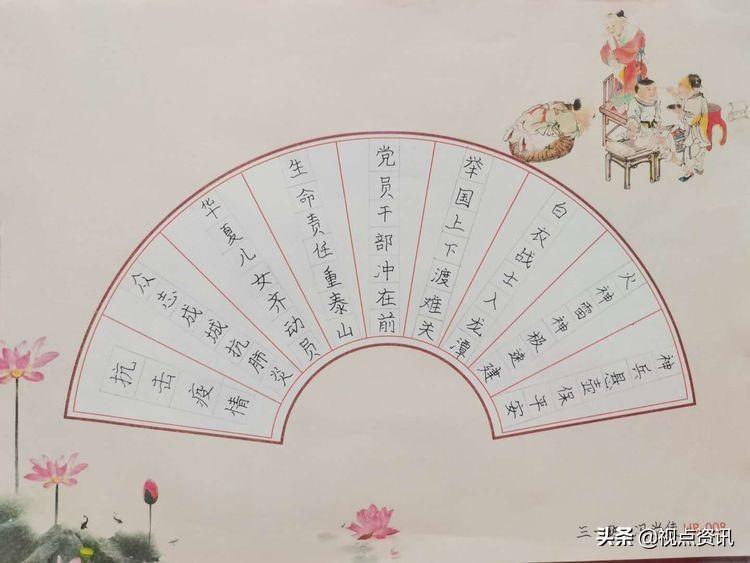 抗击疫情
众志成城抗肺炎
华夏儿女齐动员
生命责任重泰山
党员干部冲在前
举国上下渡难关
白衣战士入龙潭
火神雷神极速建
神兵悬壶保平安
三
008
头条 @视点资讯